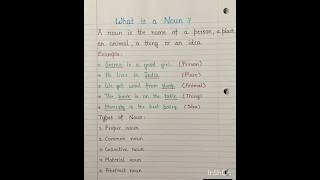 What is a Noun?
A noun is the name of a person, a place,
an animal, a thing or an idea.
Example:-
is a good girl. (Person)
He lives in India. (Place)
We get wool from sheep. (Animal)
The book is on the table. (Thing)
Honesty is the best policy. (Idea)
Types of Noun:-
1. Proper noun
2. Common noun
3. Collective noun
4. Material noun
5. Abstract noun